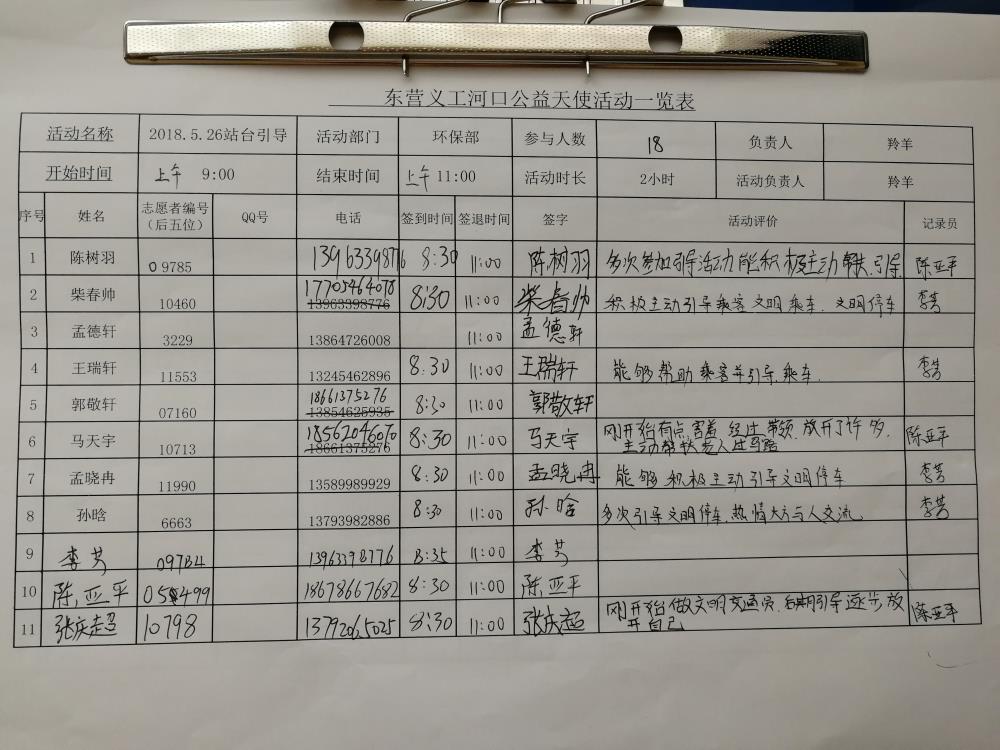 东营义工河口公益天使活动一览表
活动名称 2018.5.26站台引导 活动部门 环保部 参与人数 18 负责人 羚羊
开始时间 上午 9:00 结束时间 上午 11:00 活动时长 2小时 活动负责人 羚羊
序号 姓名 志愿者编号（后五位） QQ号 电话 签到时间 签退时间 签字 活动评价 记录员
1 陈树羽 09785 13963398776 8:30 11:00 陈树羽 多次参加引导活动能积极主动帮扶.引导 陈亚平
17705464078
2 柴春帅 10460 13963398776 8:30 11:00 柴春帅 积极主动引导乘客文明乘车.文明停车 李芳
3 孟德轩 3229 13864726008 11:00 孟德轩
4 王瑞轩 11553 13245462896 8:30 11:00 王瑞轩 能够帮助乘客并引导.乘车. 李芳
18661375276
5 郭敬轩 07160 13854625935 8:30 11:00 郭敬轩
18562046070 刚开始有点害羞 经过带领.放开了许多.
6 马天宇 10713 18661375276 8:30 11:00 马天宇 主动帮扶老人过马路 陈亚平
7 孟晓冉 11990 13589989929 8:30 11:00 孟晓冉 能够积极主动引导文明停车 李芳
8 孙晗 6663 13793982886 8:30 11:00 孙晗 多次引导文明停车.热情大方与人交流 李芳
9 李芳 09784 13963398776 8:35 11:00 李芳
10 陈亚平 05499 18678667682 8:30 11:00 陈亚平
11 张庆超 10798 13792065025 8:30 11:00 张庆超 刚开始做文明交通员.后期引导逐步放 陈亚平
开自己